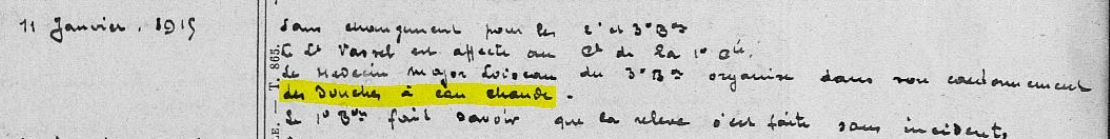 11 Janvier. 1915
Sans changement pour les 2e et 3e Bons
Le Lt Vassel est affecté au Ct de la 1e Cie.
Le Médecin Major Loiseau du 3e Bon organise dans son cantonnement
des Douches à eau chaude.
Le 1e Bon fait savoir que la relève s'est faite sans incidents
T. 865.